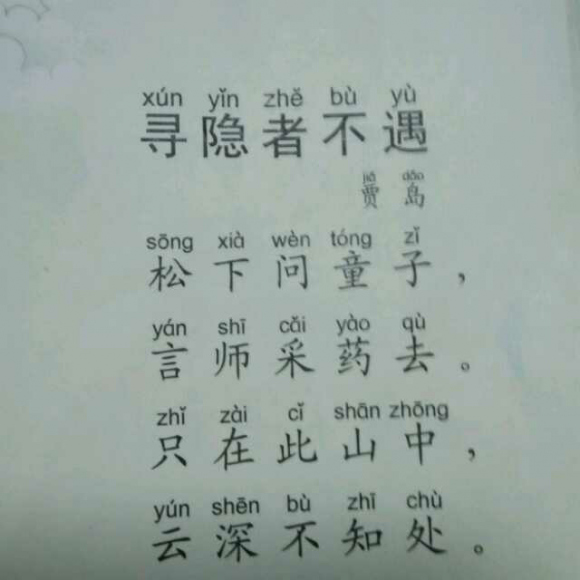 xún yǐn zhě bù yù
寻隐者不遇
jiǎ dǎo
贾岛
sōng xià wèn tóng zǐ
松下问童子，
yán shī cǎi yào qù
言师采药去。
zhǐ zài cǐ shān zhōng
只在此山中，
yún shēn bù zhī chù
云深不知处。